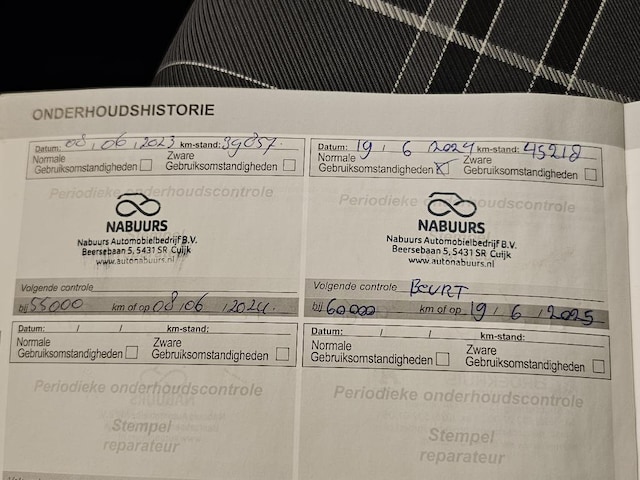 ONDERHOUDSHISTORIE
Datum: 08 / 06 / 2023 km-stand: 39857.
Normale Gebruiksomstandigheden
Zware Gebruiksomstandigheden
Periodieke onderhoudscontrole
NABUURS
Nabuurs Automobielbedrijf B.V.
Beersebaan 5, 5431 SR Cuijk
www.autonabuurs.nl
Volgende controle
bij 55000 km of op 08 / 06 / 2024.
Datum: / / km-stand:
Normale Gebruiksomstandigheden
Zware Gebruiksomstandigheden
Periodieke onderhoudscontrole
Stempel
reparateur
Volgende controle
Datum: 19 / 6 / 2024 km-stand: 45218
Normale Gebruiksomstandigheden X
Zware Gebruiksomstandigheden
Periodieke onderhoudscontrole
NABUURS
Nabuurs Automobielbedrijf B.V.
Beersebaan 5, 5431 SR Cuijk
www.autonabuurs.nl
Volgende controle BEURT
bij 60000 km of op 19 / 6 / 2025
Datum: / / km-stand:
Normale Gebruiksomstandigheden
Zware Gebruiksomstandigheden
Periodieke onderhoudscontrole
Stempel
reparateur